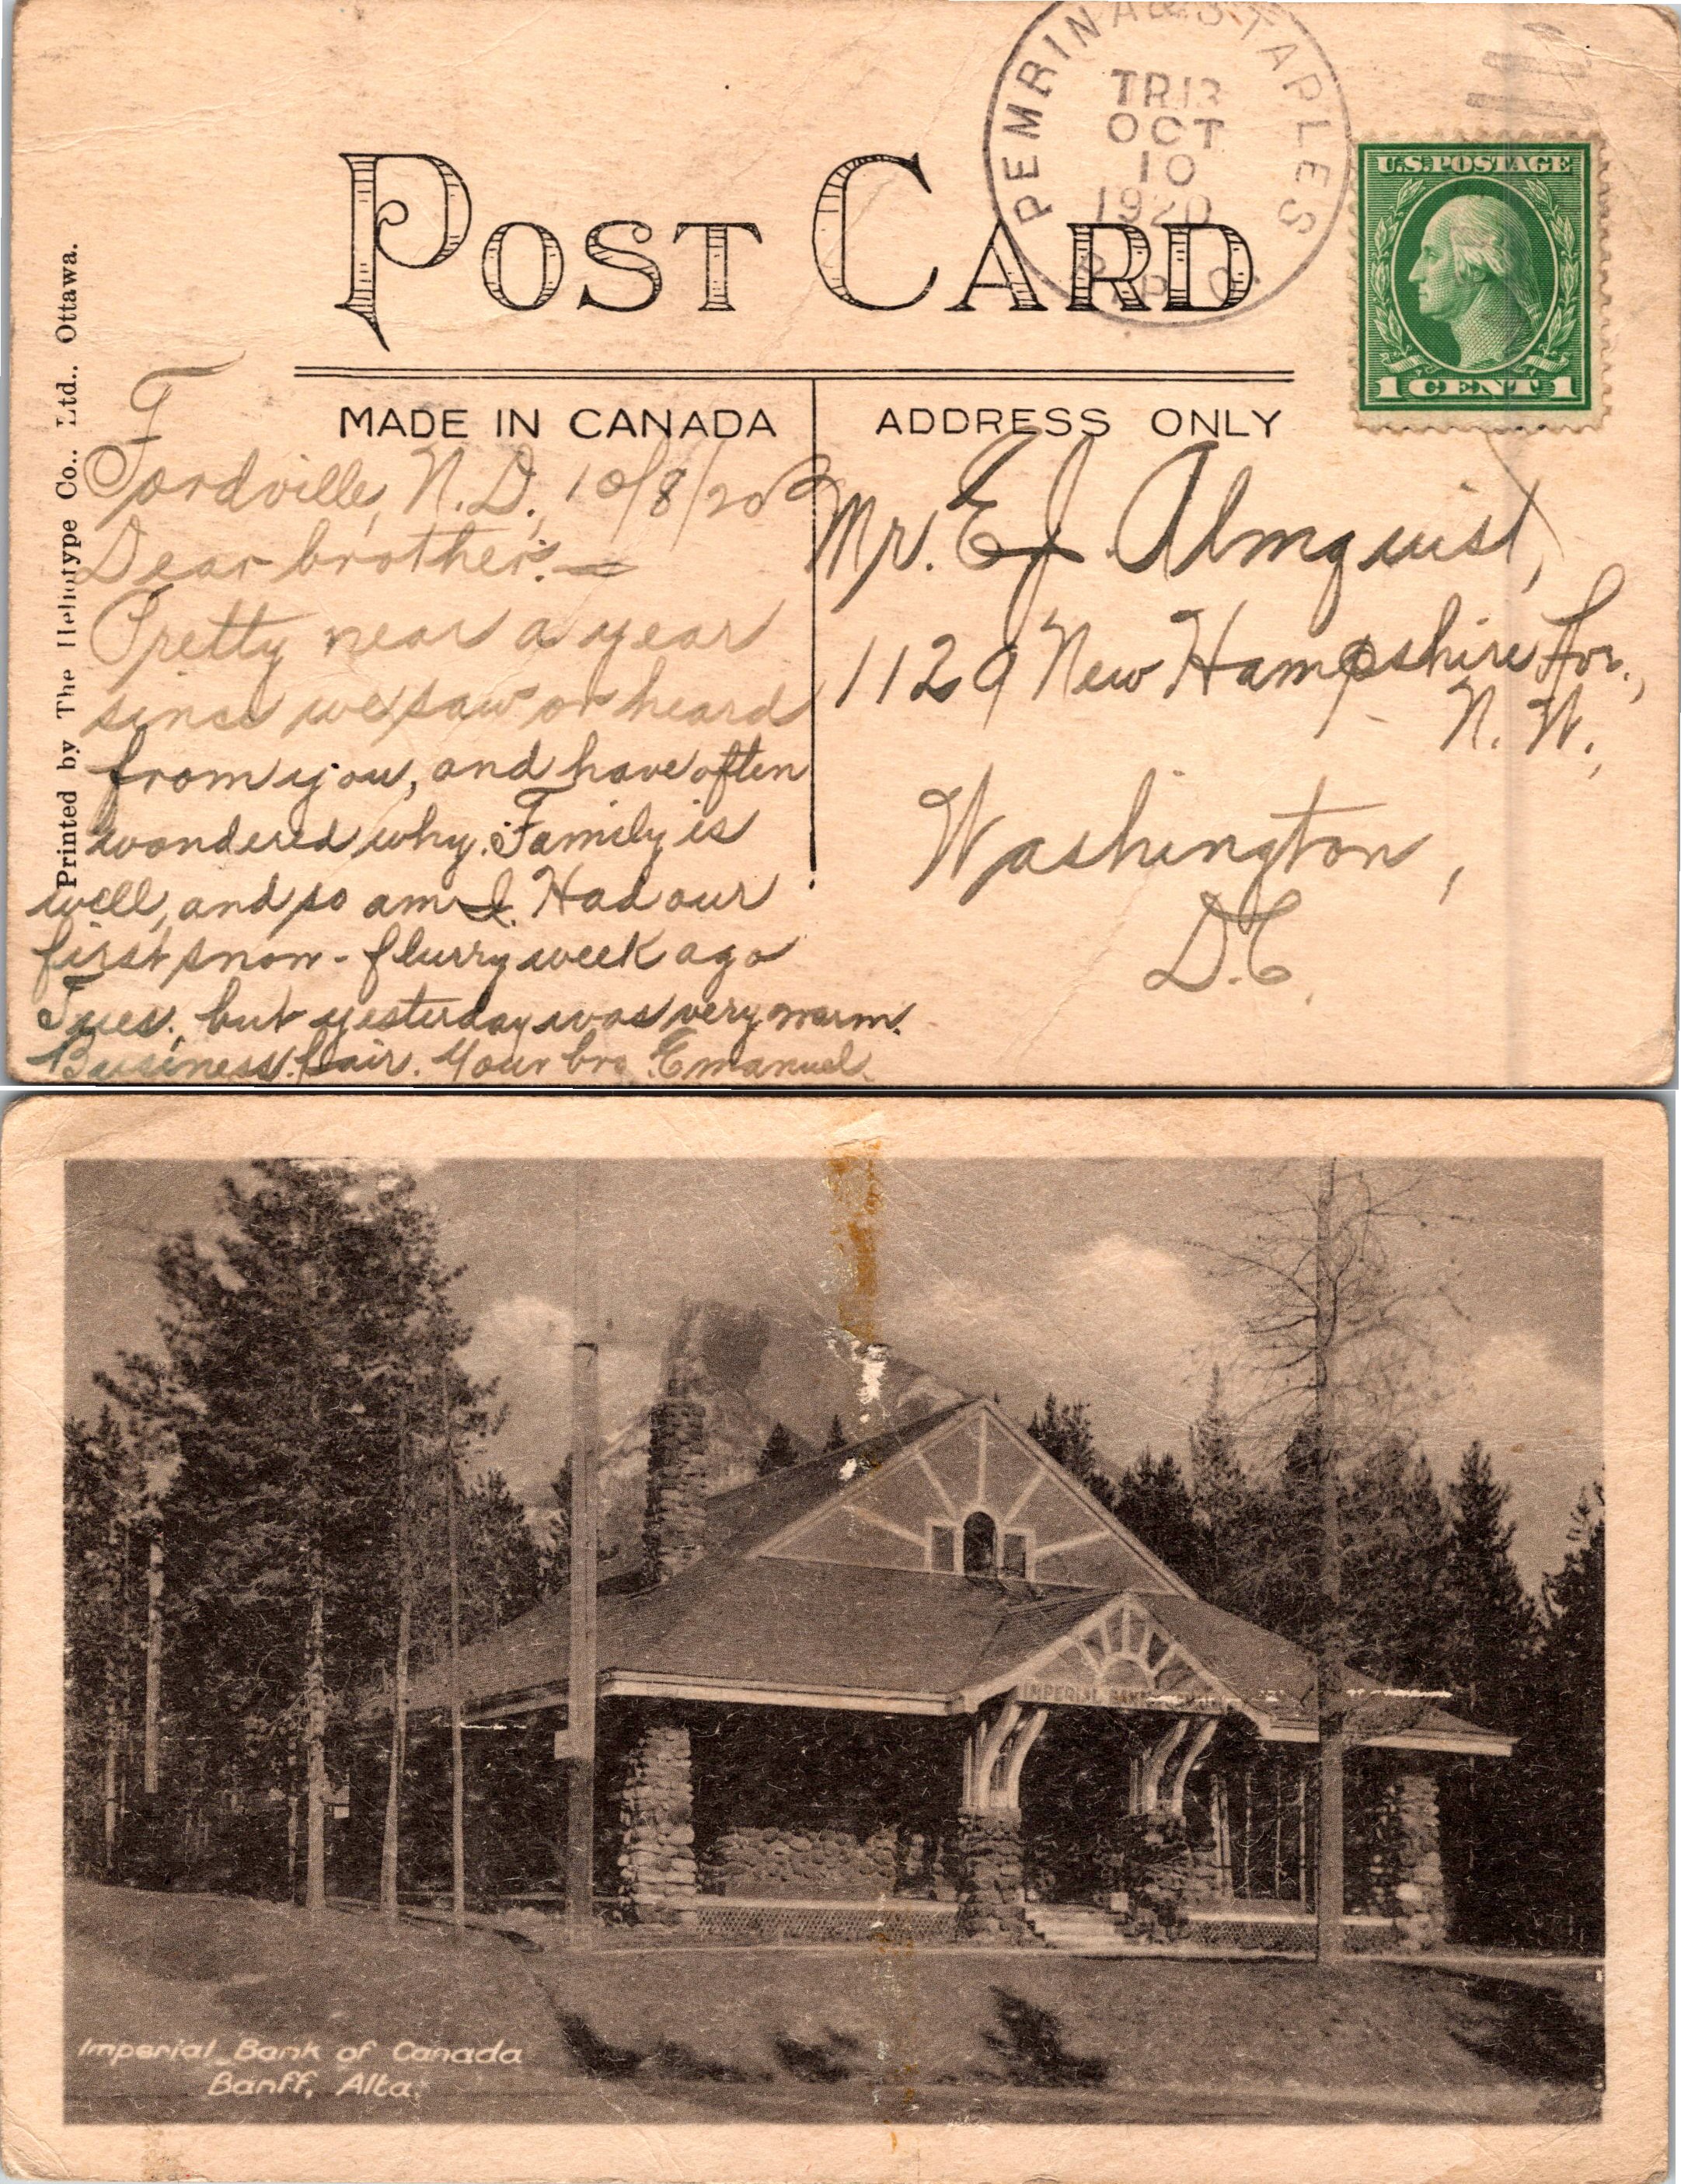 PEMBINA & STAPLES
TR 13
OCT
10
1920
R.P.O.
U.S. POSTAGE
1 CENT 1
POST CARD
MADE IN CANADA
ADDRESS ONLY
Printed by The Heliotype Co., Ltd., Ottawa.
F
Fordville, N.D., 10/8/20
Dear brother:—
Pretty near a year
since we saw or heard
from you, and have often
wondered why. Family is
well, and so am I. Had our
first snow-flurry week ago
Tues., but yesterday was very warm.
Business fair. Your bro. Emanuel.
Mr. E.J. Almquist,
1129 New Hampshire Av.,
N.W.,
Washington,
D.C.
IMPERIAL BANK
Imperial Bank of Canada
Banff, Alta.